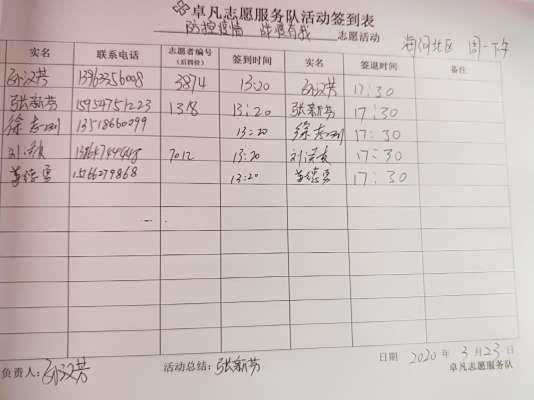 卓凡志愿服务队活动签到表
防控疫情 志愿有我 志愿活动 海河北区 周一下午
实名 联系电话 志愿者编号(后四位) 签到时间 实名 签退时间 备注
孙汉芳 13963356008 3874 13:20 孙汉芳 17:30
张新芳 15954751223 1318 13:20 张新芳 17:30
徐 13518660099 13:20 徐 17:30
刘 7012 13:20 刘 17:30
德勇 13:20 德勇 17:30
日期 2020年3月23日
负责人:孙汉芳 活动总结:张新芳 卓凡志愿服务队